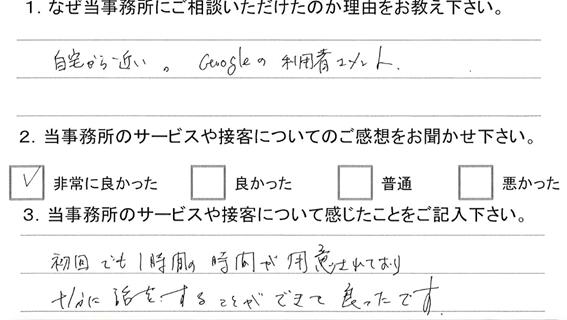 1. なぜ当事務所にご相談いただけたのか理由をお教え下さい。
自宅から近い。 Googleの利用者コメント.
2. 当事務所のサービスや接客についてのご感想をお聞かせ下さい。
✓ 非常に良かった 良かった 普通 悪かった
3. 当事務所のサービスや接客について感じたことをご記入下さい。
初回でも1時間の時間が用意されており
十分に話をすることができて良ったです